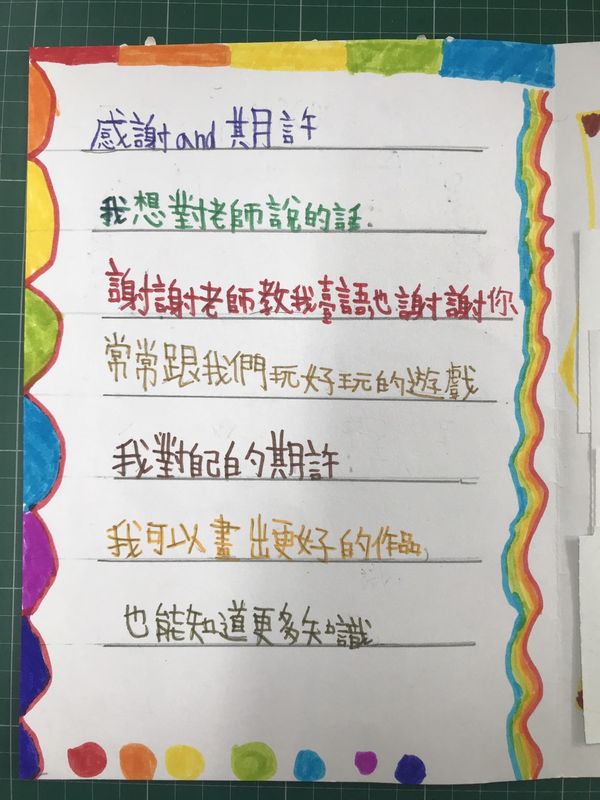 感謝and期許
我想對老師說的話.
謝謝老師教我臺語,也謝謝你
常常跟我們玩好玩的遊戲
我對自己的期許
我可以畫出更好的作品,
也能知道更多知識